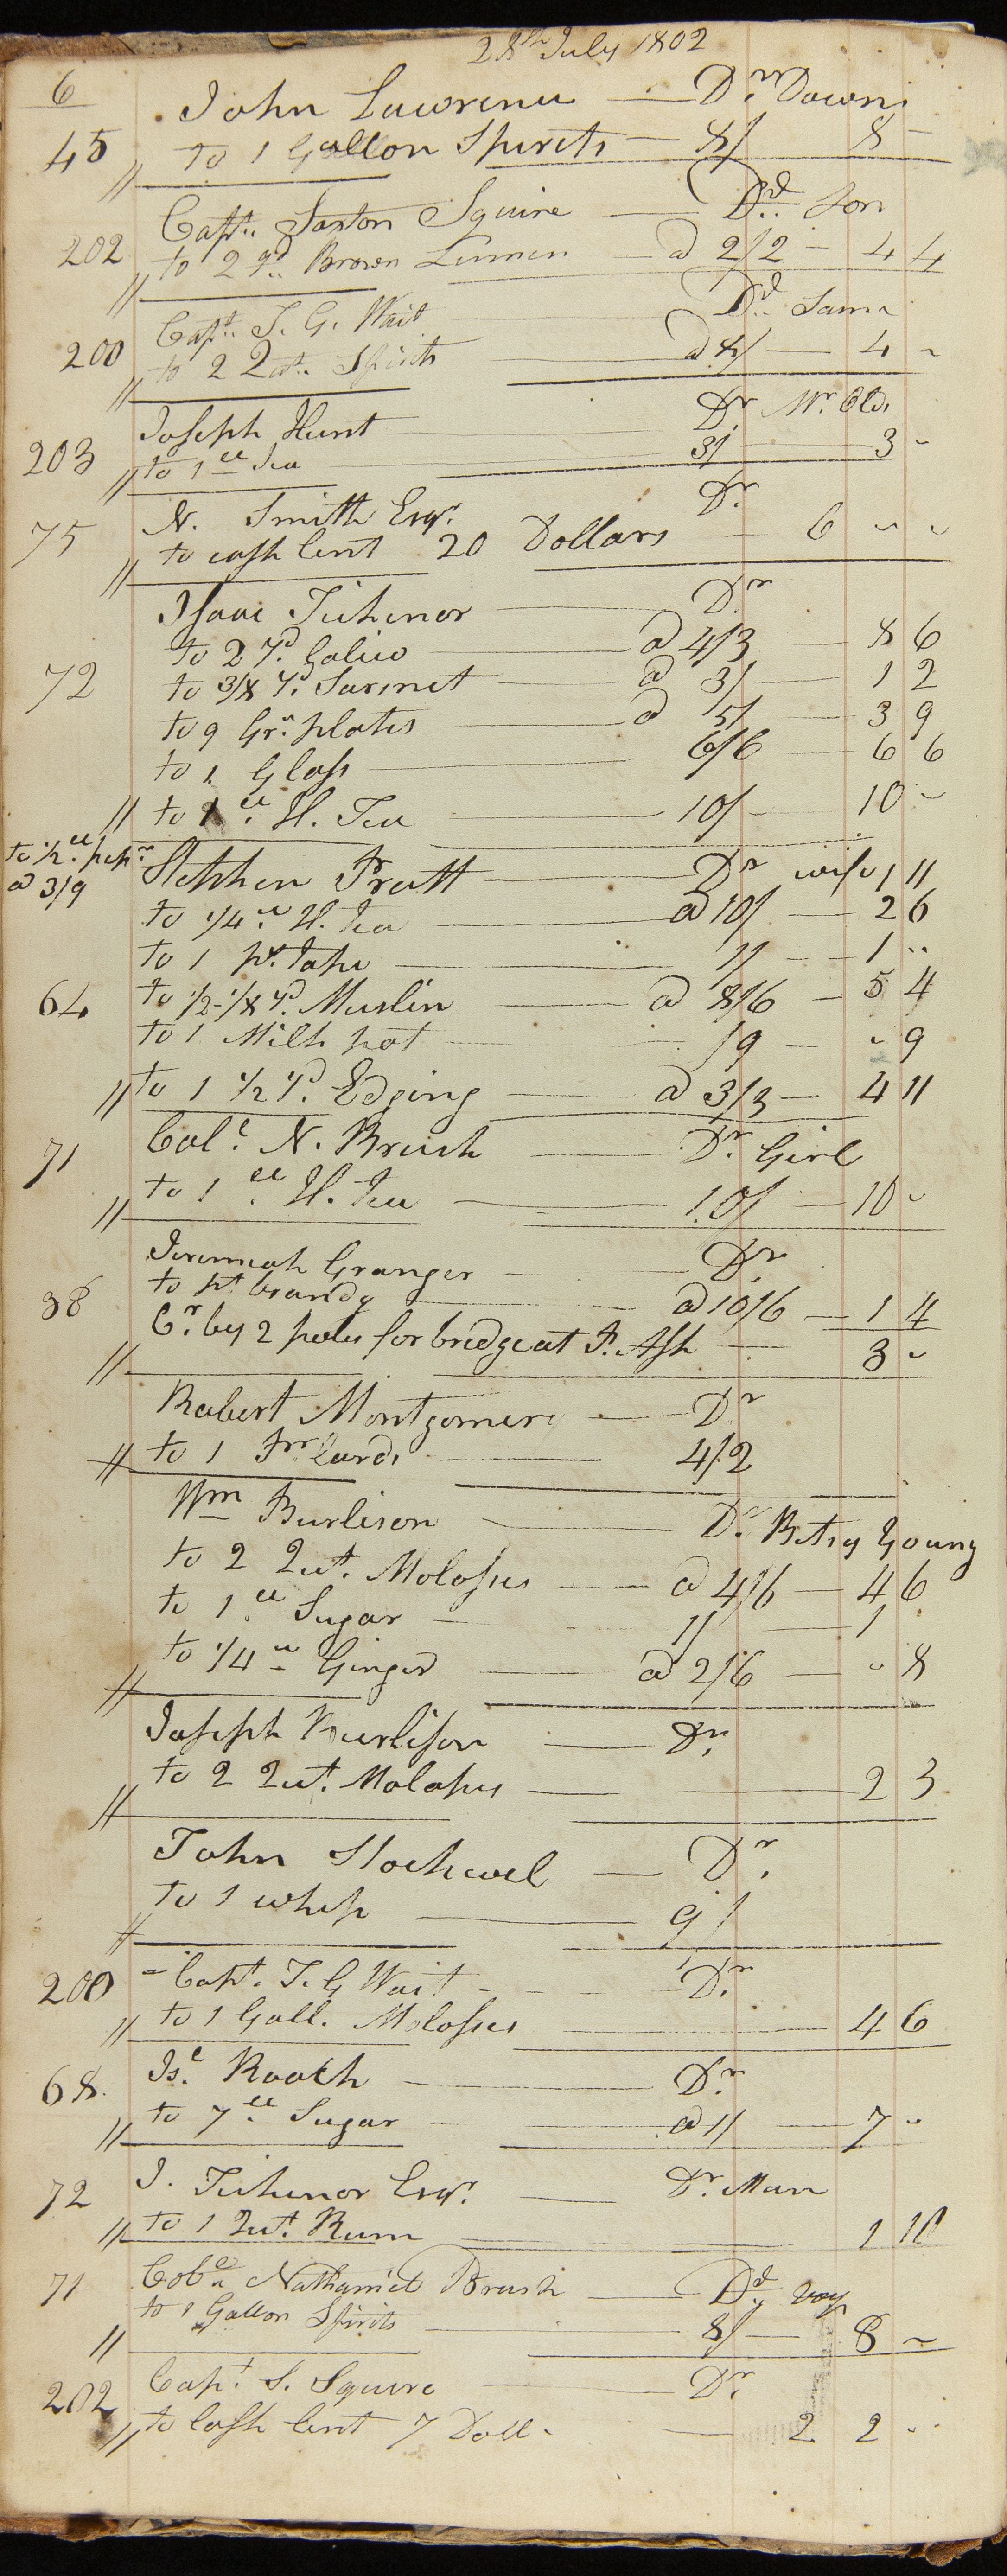 28th July 1802
6
John Lawrence — Dr Down
45 to 1 Gallon Spirits — 8/ 8 -
Capt. Saxton Squire — Dd Son
202 to 2 yd Brown Linnen — a 2/2 - 4 4
Capt. T. G. Wait Dd Same
200 to 2 Qut. Spirits a 8/ — 4 -
Joseph Hunt Dr Mr. Olds
203 to 1 ll Tea 3/ — 3 -
N. Smith Esqr. Dr
75 to cash lent 20 Dollars - 6 - -
Isaac Tichenor — Dr
to 2 yd. Calico a 4/3 — 8 6
72 to 3/8 yd. Sarsnet a 3/ — 1 2
to 9 Gr. plates a 5/ — 3 9
to 1 Glass — 6/6 — 6 6
to 1 ll. H. Tea — 10/ - 10 -
to 1/2 ll pepr
a 3/9
Stephen Pratt — Dr wife 1 11
to 1/4 ll H. Tea a 10/ — 2 6
to 1 pc. tape — 1/ - 1 -
64 to 1/2-1/8 yd. Muslin — a 8/6 - 5 4
to 1 Milk pot — /9 - - 9
to 1 1/2 yd. Edging — a 3/3 - 4 11
71 Col. N. Brush — Dr. Girl
to 1 ll H. Tea — 10/ — 10 -
Jeremiah Granger — Dr
38 to pt brandy a 10/6 — 1 4
Cr. by 2 poles for bridge at P. Ash — 3 -
Robert Montgomery — Dr
to 1 pr Cards — 4/2
Wm Burlison — Dr. Betsy Young
to 2 Qut. Molosses — a 4/6 — 4 6
to 1 ll Sugar — 1/ — 1
to 1/4 ll Ginger — a 2/6 — - 8
Joseph Burlison — Dr.
to 2 Qut. Molosses — 2 3
John Stockwel — Dr.
to 1 whip — 9/
200 Capt. T. G Wait - Dr.
to 1 Gall. Molosses — 4 6
68 Is. Roach — Dr.
to 7 ll Sugar a 1/ — 7 -
72 I. Tichenor Esqr. — Dr. Man
to 1 Qut. Rum — 1 10
71 Col. Nathaniel Brush — Dd. boy
to 1 Gallon Spirits — 8/ — 8 -
Capt. S. Squire — Dr.
202 to Cash lent 7 Doll. — 2 2 -